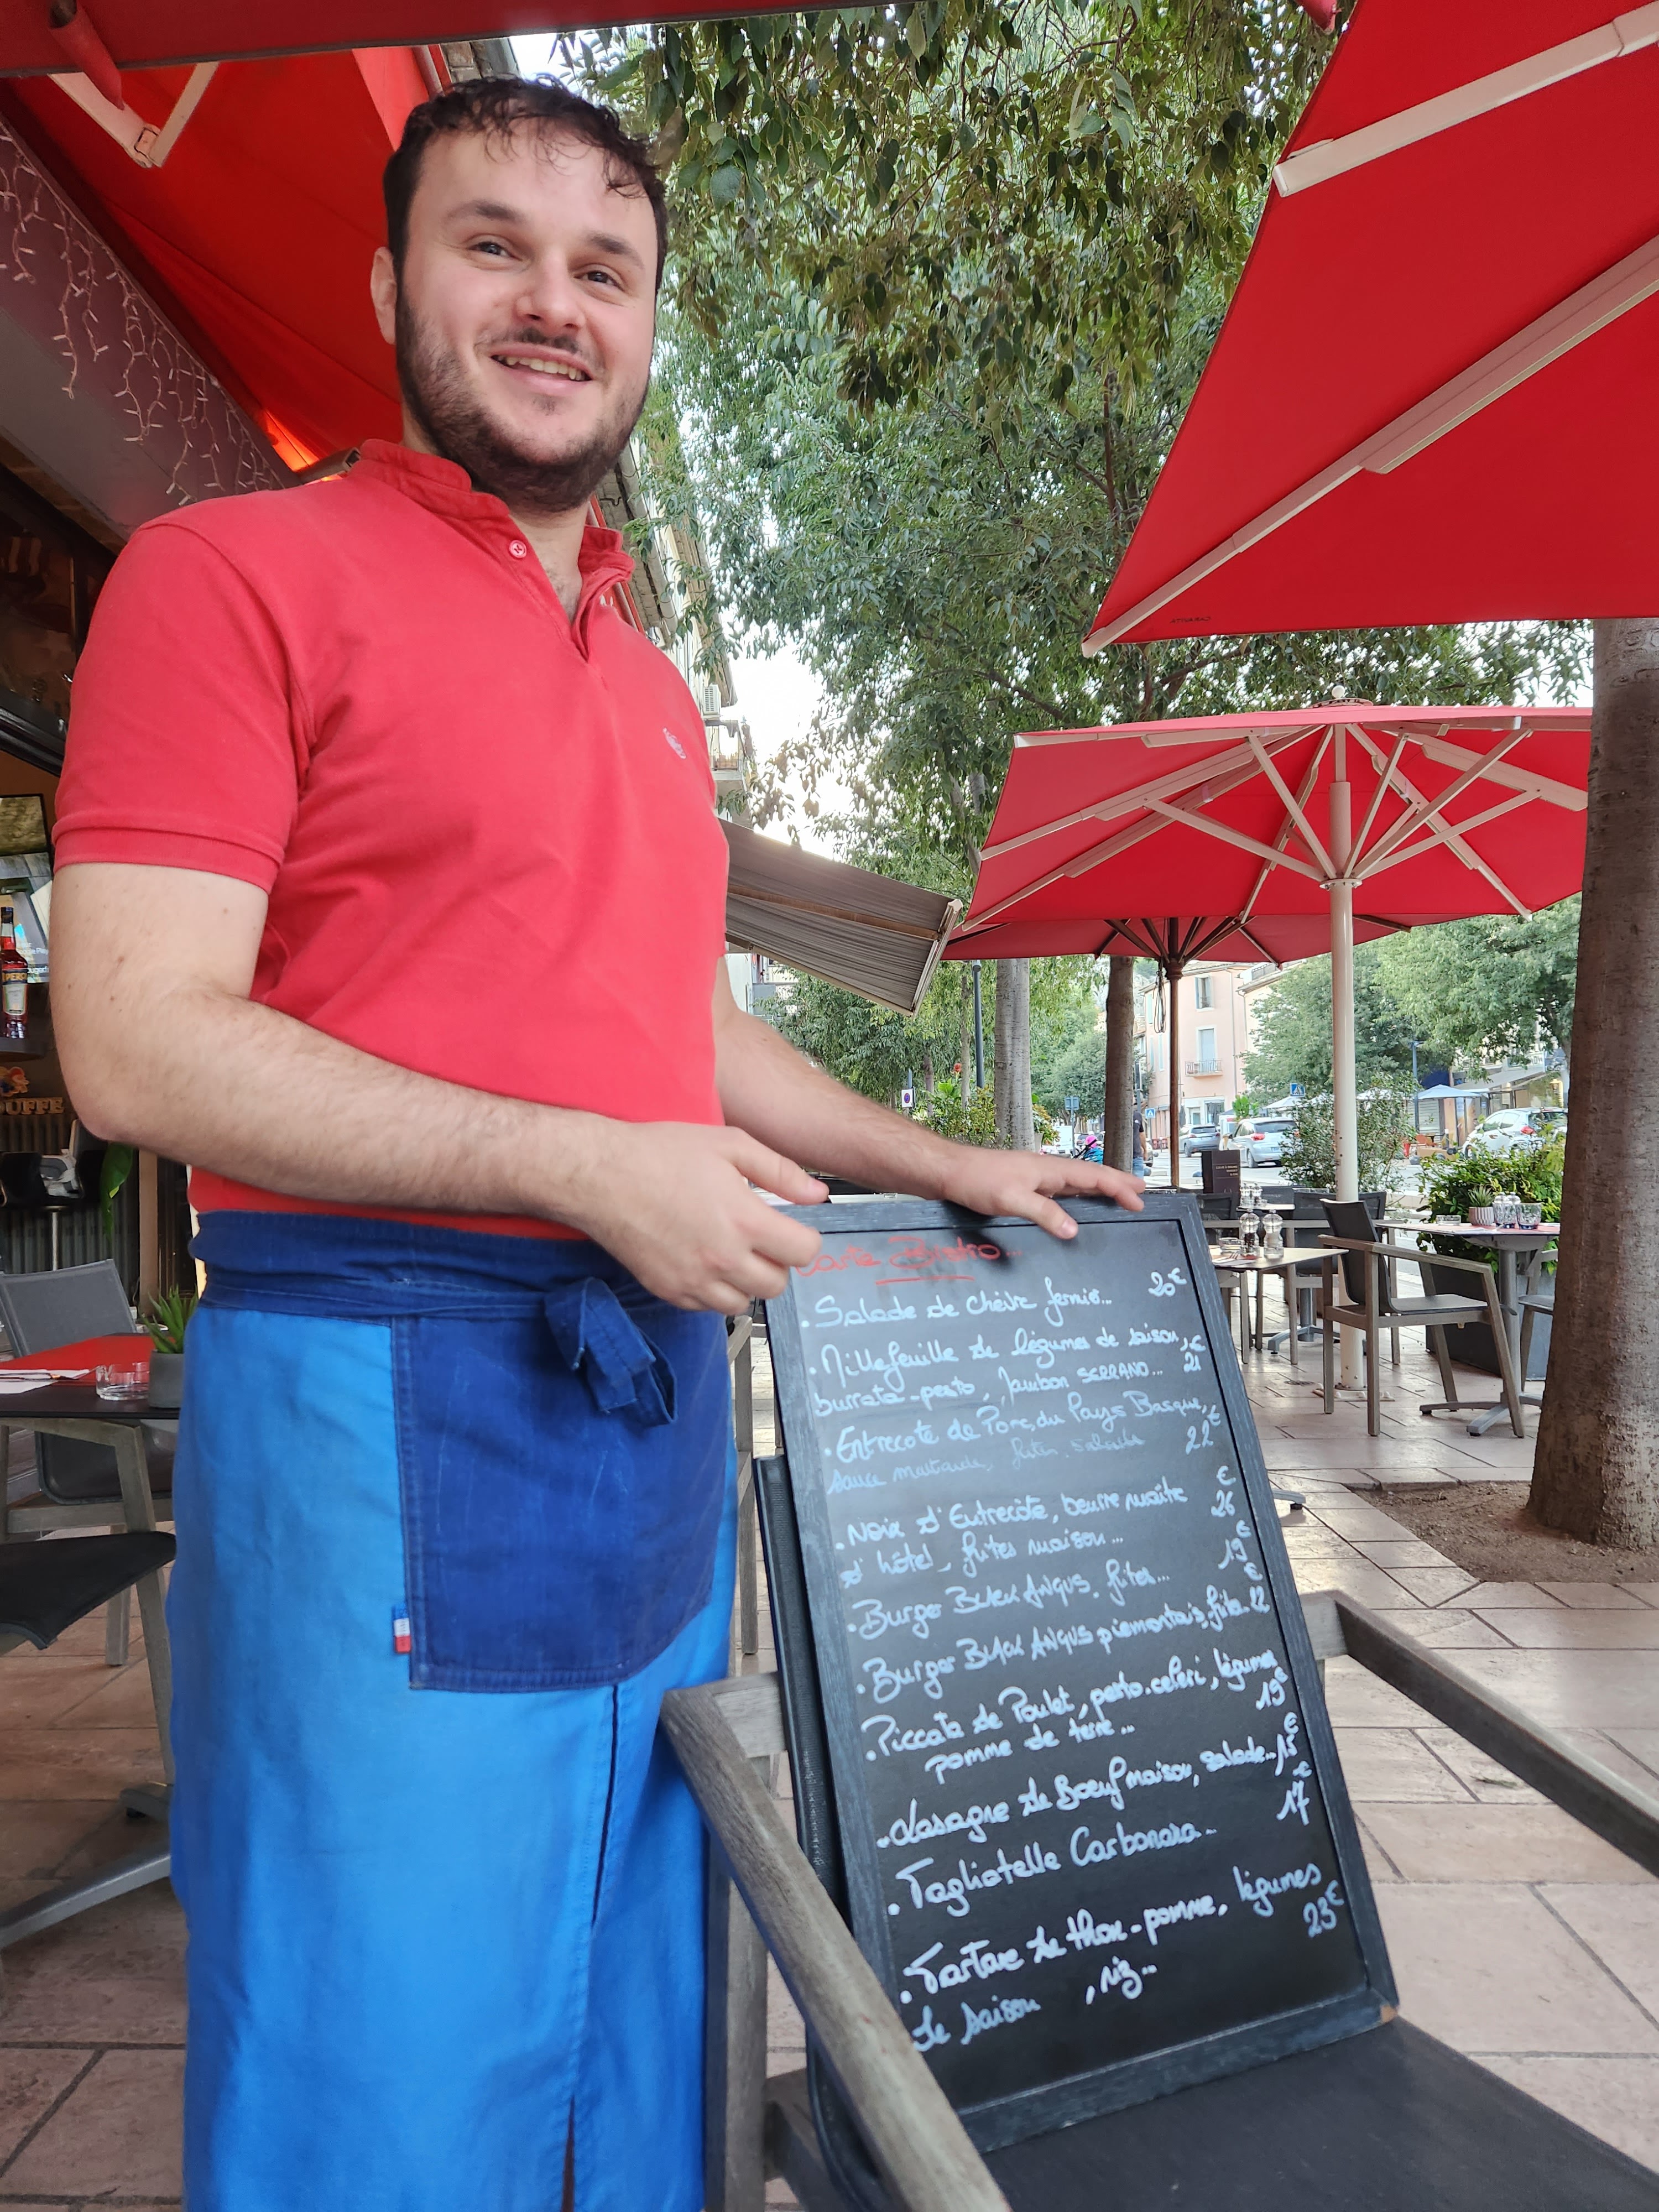 Carte Bistro...
. Salade de chèvre fermier... 20€
. Millefeuille de légumes de saison,
burrata-pesto, Jambon SERRANO... 21€
. Entrecote de Porc du Pays Basque,
sauce moutarde, frites, salade 22€
. Noix d'Entrecôte, beurre maître
d'hôtel, frites maison... 26€
. Burger BLACK ANGUS, frites... 19€
. Burger BLACK ANGUS piemontais, frites 22€
. Piccata de Poulet, pesto-celeri, légumes
pomme de terre... 19€
. Lasagne de Boeuf maison, salade... 15€
. Tagliatelle Carbonara... 17€
. Tartare de thon-pomme, légumes
de saison, riz... 23€